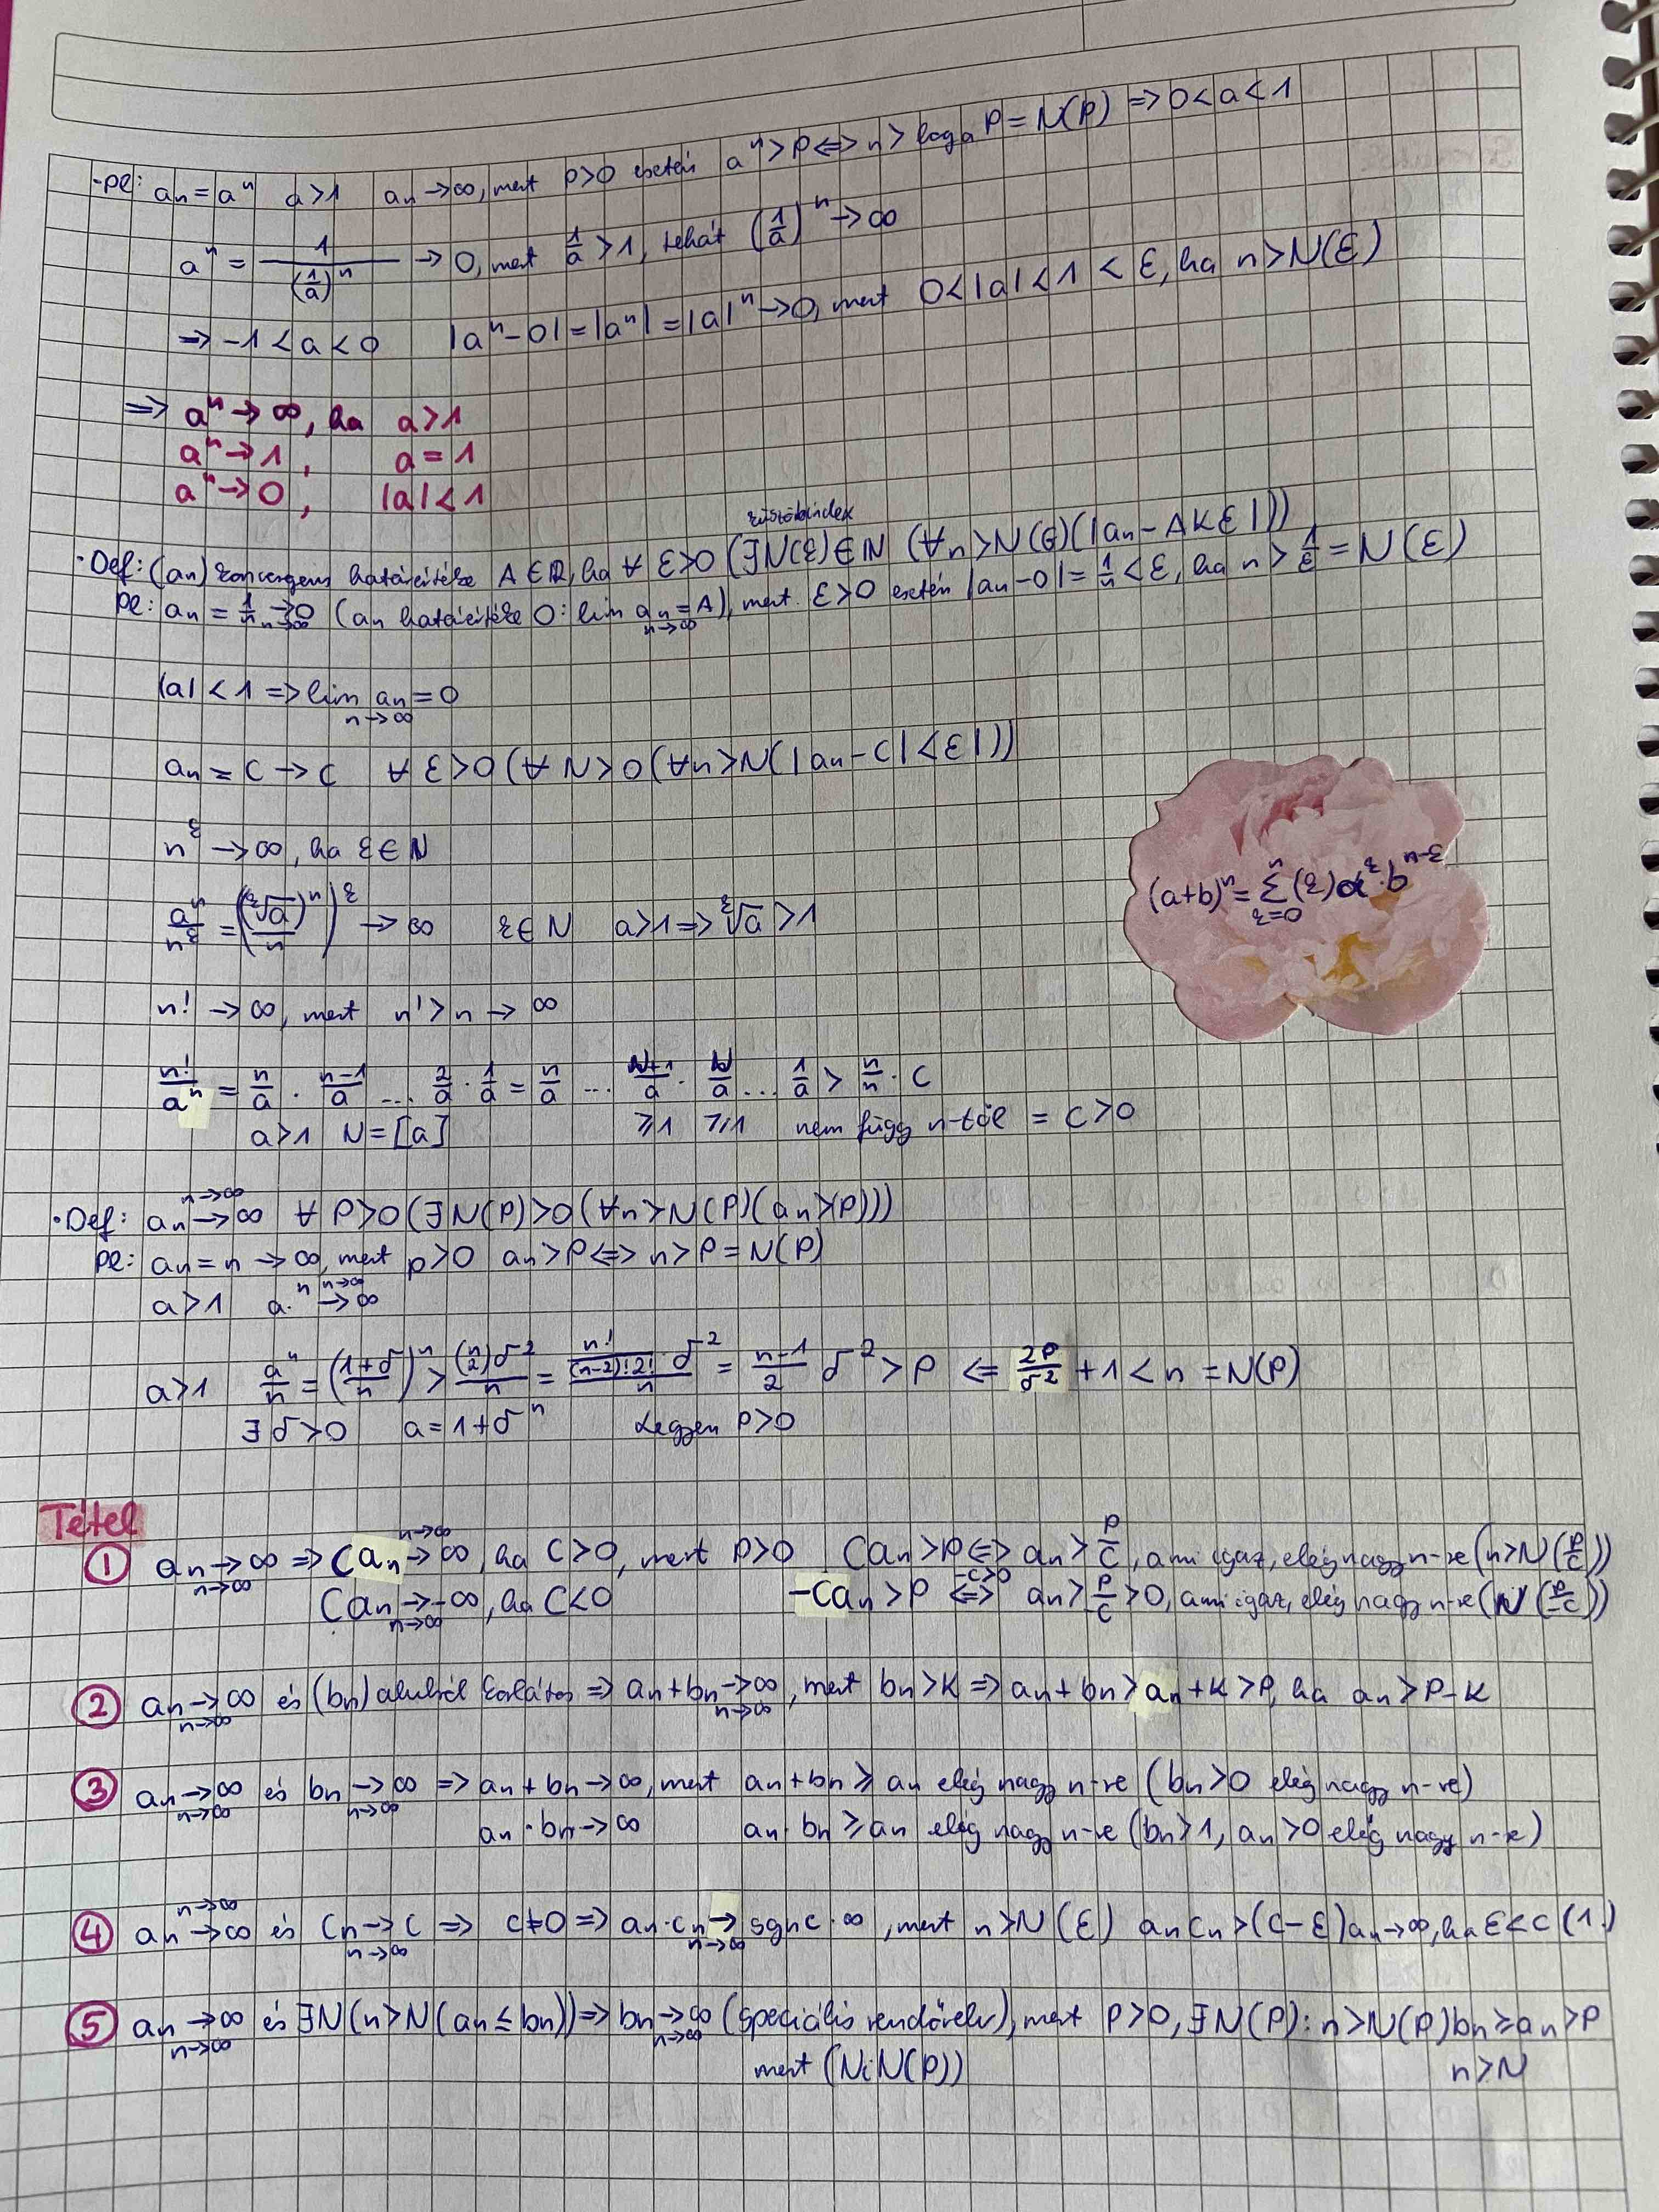 -pl: aₙ = aⁿ a>1 aₙ → ∞, mert p>0 esetén aⁿ > P ⇔ n > logₐ P = N(P) ⇒ 0<a<1
aⁿ = 1/(1/a)ⁿ → 0, mert 1/a > 1, tehát (1/a)ⁿ → ∞
⇒ -1 < a < 0 |aⁿ - 0| = |aⁿ| = |a|ⁿ → 0, mert 0<|a|<1 < ε, ha n > N(ε)
⇒ aⁿ → ∞, ha a > 1
aⁿ → 1, a = 1
aⁿ → 0, |a| < 1
küszöbindex
· Def: (aₙ) konvergens határértéke A ∈ ℝ, ha ∀ ε>0 (∃N(ε) ∈ ℕ (∀n > N(ε)(|aₙ - A|<ε|))
pl: aₙ = 1/n →(n→∞) 0 (aₙ határértéke 0: lim(n→∞) aₙ = A), mert ε>0 esetén |aₙ - 0| = 1/n < ε, ha n > 1/ε = N(ε)
|a| < 1 ⇒ lim(n→∞) aₙ = 0
aₙ = c → c ∀ ε>0 (∀ N>0 (∀n>N(|aₙ - c|<ε|))
nᵏ → ∞, ha k ∈ N
(a+b)ⁿ = Σ(k=0..n) (k) aᵏ · bⁿ⁻ᵏ
aⁿ/nᵏ = ((ᵏ√a)ⁿ/n)ᵏ → ∞ k ∈ N a>1 ⇒ ᵏ√a > 1
n! → ∞, mert n! > n → ∞
n!/aⁿ = n/a · (n-1)/a ... 2/a · 1/a = n/a ... (N+1)/a · N/a ... 1/a > n/n · C
a>1 N = [a] ≥1 ≥1 nem függ n-től = C>0
· Def: aₙ →(n→∞) ∞ ∀ P>0 (∃N(P)>0 (∀n>N(P)(aₙ>P)))
pl: aₙ = n → ∞, mert p>0 aₙ > P ⇔ n > P = N(P)
a>1 aⁿ →(n→∞) ∞
a>1 aⁿ/n = ((1+δ)/n)ⁿ > (n 2)δ²/n = (n!/((n-2)!2!) · δ²)/n = (n-1)/2 δ² > P ⇐ 2P/δ² + 1 < n = N(P)
∃ δ>0 a = 1+δⁿ Legyen P>0
Tétel
① aₙ →(n→∞) ∞ ⇒ Caₙ →(n→∞) ∞, ha C>0, mert P>0 Caₙ > P ⇔ aₙ > P/C, ami igaz, elég nagy n-re (n>N(P/C))
Caₙ →(n→∞) -∞, ha C<0 -Caₙ > P ⇔(-C>0) aₙ > P/-C > 0, ami igaz, elég nagy n-re (N(P/-C))
② aₙ →(n→∞) ∞ és (bₙ) alulról korlátos ⇒ aₙ + bₙ →(n→∞) ∞, mert bₙ > K ⇒ aₙ + bₙ > aₙ + K > P, ha aₙ > P - K
③ aₙ →(n→∞) ∞ és bₙ →(n→∞) ∞ ⇒ aₙ + bₙ → ∞, mert aₙ + bₙ ≥ aₙ elég nagy n-re (bₙ > 0 elég nagy n-re)
aₙ · bₙ → ∞ aₙ · bₙ ≥ aₙ elég nagy n-re (bₙ > 1, aₙ > 0 elég nagy n-re)
④ aₙ →(n→∞) ∞ és cₙ →(n→∞) c ⇒ c≠0 ⇒ aₙ · cₙ →(n→∞) sgn c · ∞, mert n > N(ε) aₙcₙ > (c-ε)aₙ → ∞, ha ε < c (1.)
⑤ aₙ →(n→∞) ∞ és ∃N(n>N(aₙ ≤ bₙ)) ⇒ bₙ →(n→∞) ∞ (speciális rendőrelv), mert P>0, ∃ N(P): n>N(P) bₙ ≥ aₙ > P
mert (N; N(P)) n > N